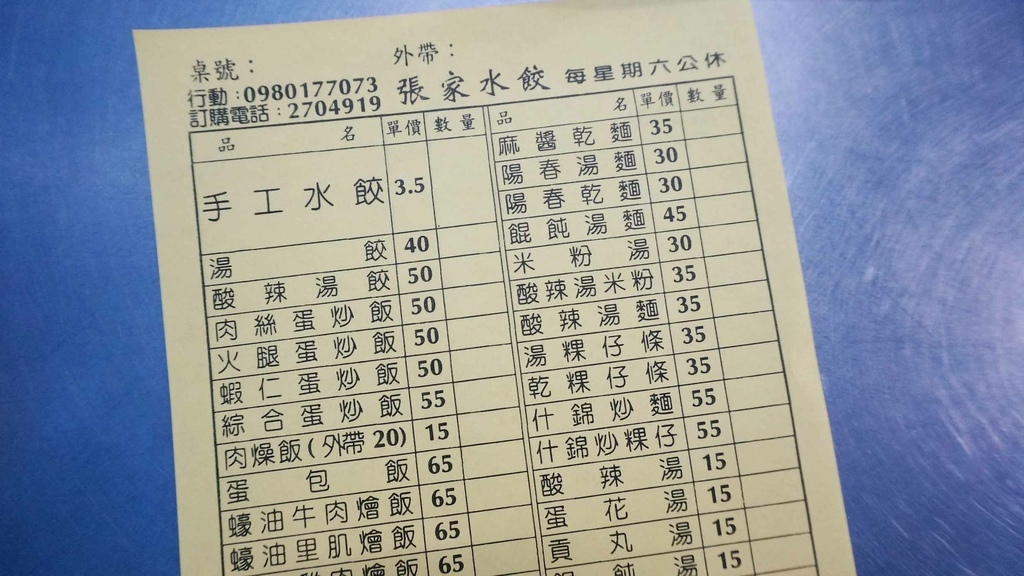 桌號：
外帶：
行動：0980177073
訂購電話：2704919
張家水餃 每星期六公休
品名 單價 數量
手工水餃 3.5
湯餃 40
酸辣湯餃 50
肉絲蛋炒飯 50
火腿蛋炒飯 50
蝦仁蛋炒飯 50
綜合蛋炒飯 55
肉燥飯(外帶20) 15
蛋包飯 65
蠔油牛肉燴飯 65
蠔油里肌燴飯 65
肉燴飯 65
品名 單價 數量
麻醬乾麵 35
陽春湯麵 30
陽春乾麵 30
餛飩湯麵 45
米粉湯 30
酸辣湯米粉 35
酸辣湯麵 35
湯粿仔條 35
乾粿仔條 35
什錦炒麵 55
什錦炒粿仔 55
酸辣湯 15
蛋花湯 15
貢丸湯 15
餛飩湯 15